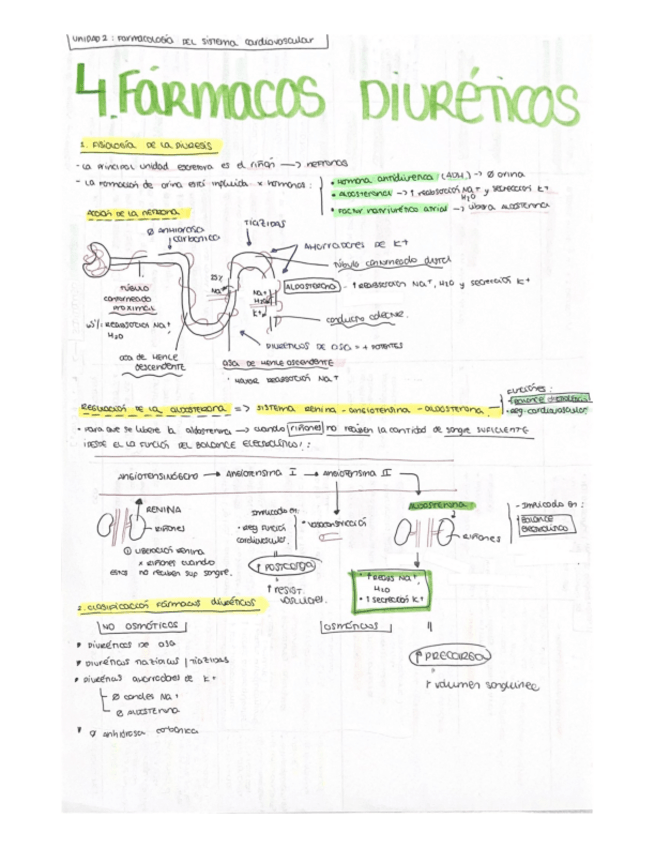 UNIDAD 2: FARMACOLOGÍA DEL SISTEMA CARDIOVASCULAR
4. FÁRMACOS DIURÉTICOS
1. FISIOLOGÍA DE LA DIURESIS
- LA PRINCIPAL UNIDAD EXCRETORA ES EL RIÑÓN → NEFRONAS
- LA FORMACIÓN DE ORINA ESTÁ INFLUIDA X HORMONAS:
• HORMONA ANTIDIURÉTICA (ADH) → Ø ORINA
• ALDOSTERONA → ↑ REABSORCIÓN Na+ y SECRECIÓN K+
H2O
• FACTOR NATRIURÉTICO ATRIAL → LIBERA ALDOSTERONA
ACCIÓN DE LA NEFRONA:
Ø ANHIDRASA
CARBÓNICA
TIAZIDAS
AHORRADORES DE K+
TÚBULO CONTORNEADO DISTAL
ALDOSTERONA - ↑ REABSORCIÓN Na+, H2O y SECRECIÓN K+
25%
Na+
Na+
H2O
K+
CONDUCTO COLECTOR.
TÚBULO
CONTORNEADO
PROXIMAL
65% REABSORCIÓN Na+
H2O
DIURÉTICOS DE ASA = + POTENTES
ASA DE HENLE
DESCENDENTE
ASA DE HENLE ASCENDENTE
· MAYOR REABSORCIÓN Na+
REGULACIÓN DE LA ALDOSTERONA => SISTEMA RENINA - ANGIOTENSINA - ALDOSTERONA.
FUNCIONES:
• BALANCE ELECTROLÍTICO
• REG. CARDIOVASCULAR
• PARA QUE SE LIBERE LA ALDOSTERONA → CUANDO RIÑONES NO RECIBEN LA CANTIDAD DE SANGRE SUFICIENTE
(DESDE EL LA FUNCIÓN DEL BALANCE ELECTROLÍTICO):
ANGIOTENSINÓGENO → ANGIOTENSINA I → ANGIOTENSINA II
RENINA
RIÑONES
① LIBERACIÓN RENINA
X RIÑONES CUANDO
ESTOS NO RECIBEN SUF SANGRE.
IMPLICADO EN:
• REG FUNCIÓN
CARDIOVASCULAR.
• VASOCONSTRICCIÓN
↑ POSTCARGA
↑ RESIST.
VASCULARES.
ALDOSTERONA
RIÑONES
- IMPLICADO EN:
BALANCE
ELECTROLÍTICO
• ↑ REABS Na+,
H2O
• ↑ SECRECIÓN K+
2. CLASIFICACIÓN FÁRMACOS DIURÉTICOS
NO OSMÓTICOS
OSMÓTICOS
DIURÉTICOS DE ASA
DIURÉTICOS TIAZIDICOS | TIAZIDAS
DIURÉTICOS AHORRADORES DE K+
Ø CANALES Na+
Ø ALDOSTERONA
Ø ANHIDRASA CARBÓNICA
↑ PRECARGA
↑ VOLUMEN SANGUÍNEO